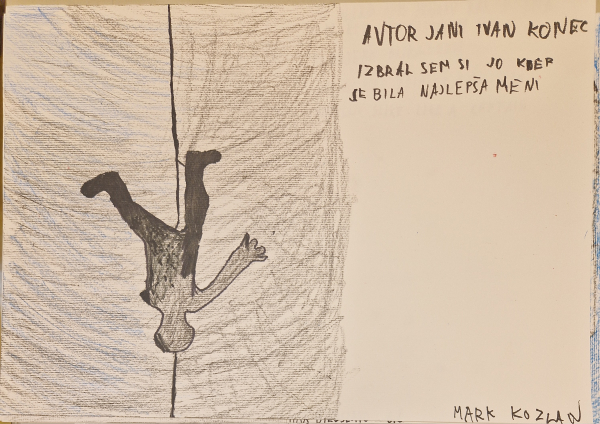 AVTOR JANI IVAN KONEC
IZBRAL SEM SI JO KDER
JE BILA NAJLEPŠA MENI
MARK KOZLAN